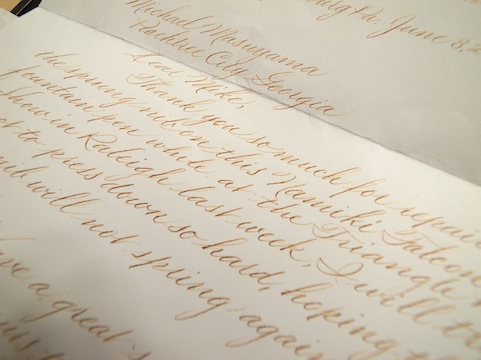 June 3, 2
Michael Masuyama
Peachtree City, Georgia
Dear Mike,
Thank you so much for repairi
the sprung nib on this Namiki Falcon
fountain pen while at the Triangle
Show in Raleigh last week. I will t
not to press down so hard, hoping
nib will not spring agai
a great